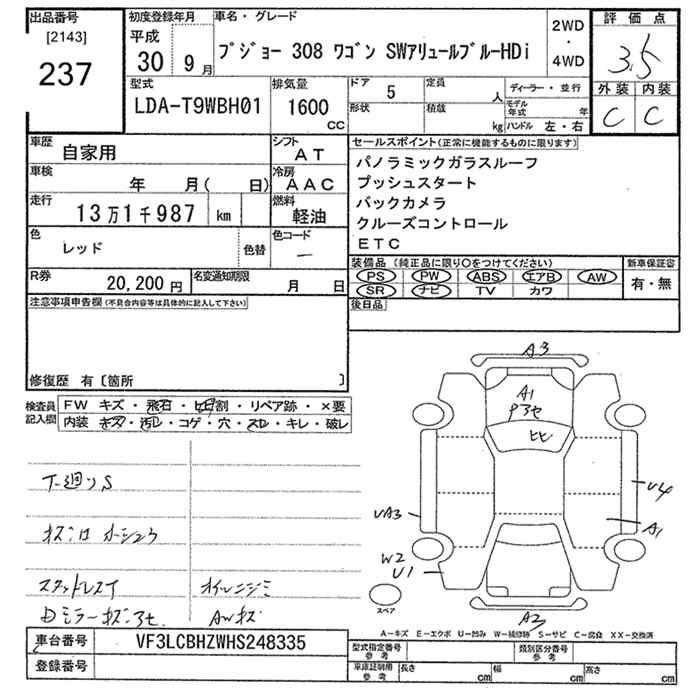 出品番号
[2143]
237
初度登録年月
平成
30 9月
車名・グレード
プジョー 308 ワゴン SWアリュールブルーHDi
2WD
・
4WD
評価点
3.5
外装 内装
C C
型式
LDA-T9WBH01
排気量
1600
CC
ドア 5
定員 人
形状
積載 kg
ディーラー・並行
モデル年式 年
ハンドル 左・右
車歴
自家用
シフト
AT
車検
年 月( 日)
冷房
AAC
走行
13万1千987 km
燃料
軽油
色
レッド
色替
色コード
R券
20,200円
名変通知期限
月 日
セールスポイント(正常に機能するものに限ります)
パノラミックガラスルーフ
プッシュスタート
バックカメラ
クルーズコントロール
ETC
装備品(純正品に限り〇をつけてください)
PS PW ABS エアB AW
SR ナビ TV カワ
新車保証書
有・無
後日品
注意事項申告欄(不具合内容等は具体的に記入して下さい)
修復歴 有〔箇所 〕
検査員記入欄
FW キズ・飛石・ヒビ割・リペア跡・×要
内装 キズ・汚レ・コゲ・穴・スレ・キレ・破レ
下廻りS
スタッドレスT
AWキズ
A3
A1
ヒビ
U4
A1
UA3
W2
U1
A2
スペア
A-キズ E-エクボ U-凹み W-補修跡 S-サビ C-腐食 XX-交換済
車台番号
VF3LCBHZWHS248335
登録番号
型式指定番号
参考
類別区分番号
参考
車庫証明用
参考
長さ cm
幅 cm
高さ cm